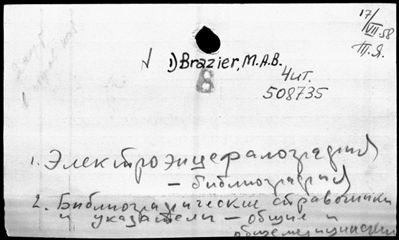 17/VII.58
П.Я.
√ 1) Brazier, M.A.B.
Б
Чит.
508735
1. Электроэнцефалография
– библиография
2. Библиографические справочники
и указатели – общие и
общемедицинские